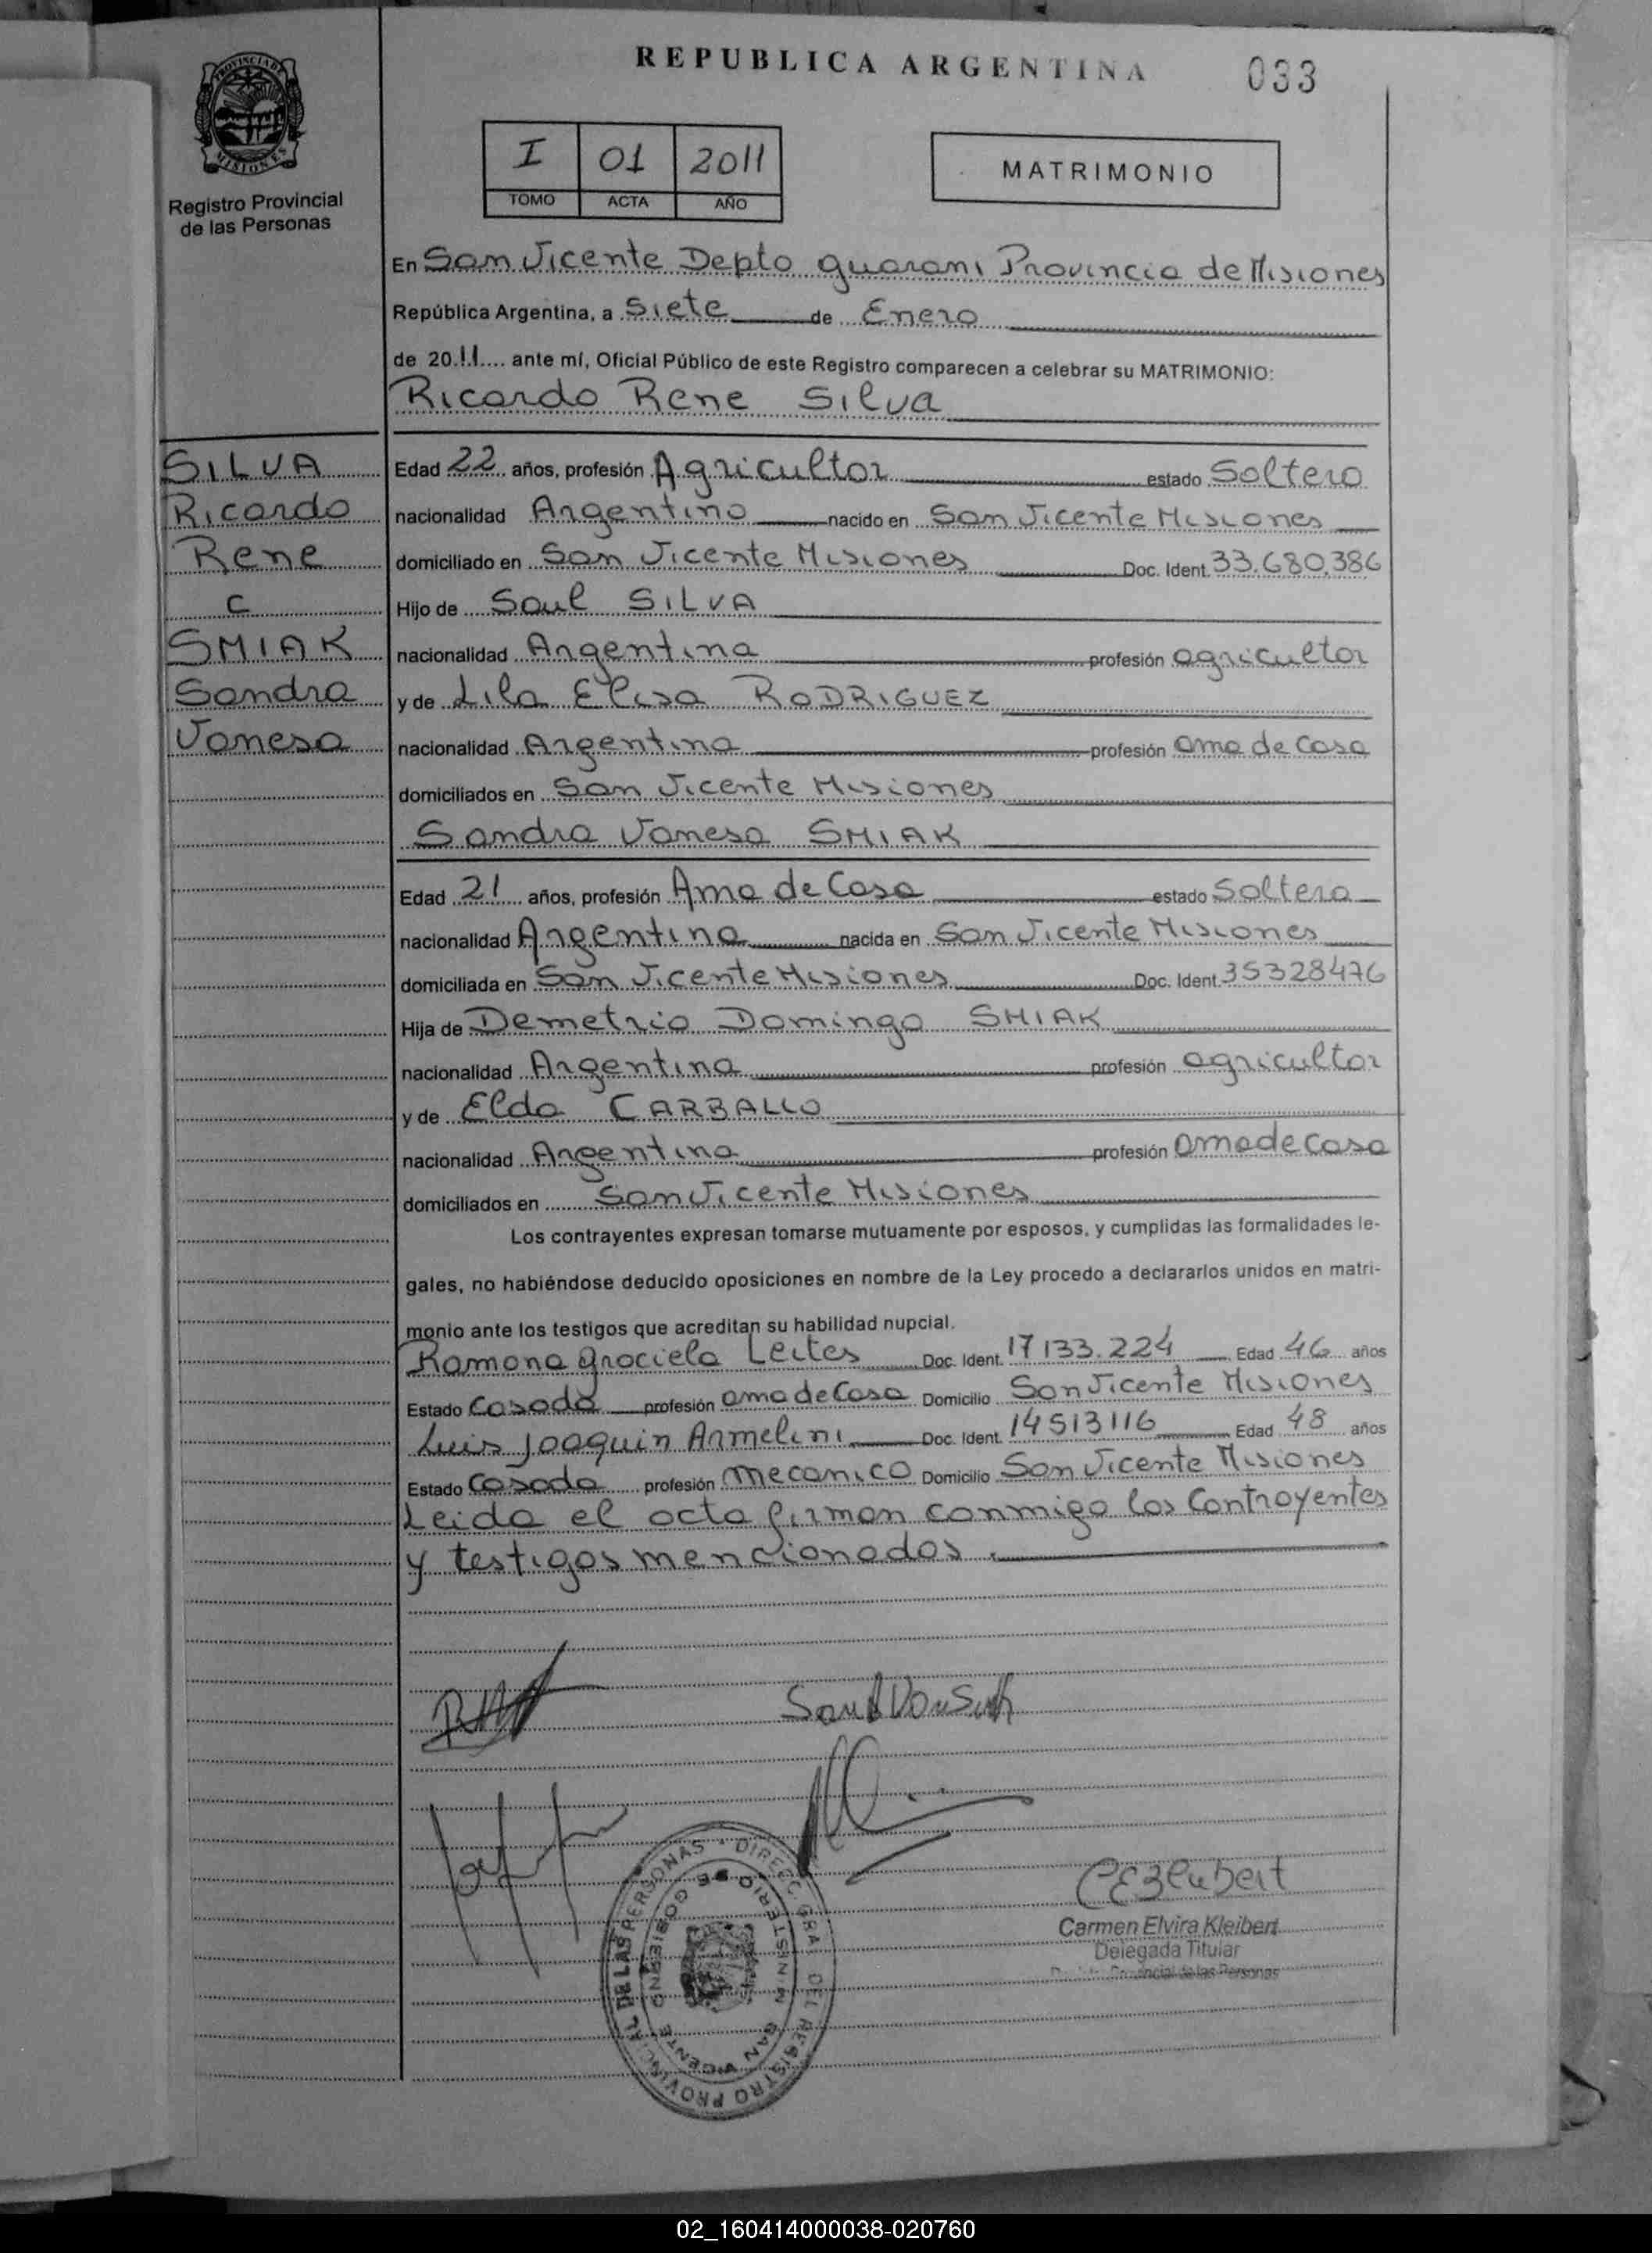 REPUBLICA ARGENTINA
033
PROVINCIA DE MISIONES
Registro Provincial
de las Personas
I 01 2011
TOMO ACTA AÑO
MATRIMONIO
En San Vicente Depto guarani Provincia de Misiones
República Argentina, a Siete de Enero
de 2011 ante mí, Oficial Público de este Registro comparecen a celebrar su MATRIMONIO:
Ricardo Rene Silva
SILVA
Ricardo
Rene
c
SMIAK
Sandra
Vanesa
Edad 22 años, profesión Agricultor estado Soltero
nacionalidad Argentino nacido en San Vicente Misiones
domiciliado en San Vicente Misiones Doc. Ident. 33.680.386
Hijo de Saul SILVA
nacionalidad Argentina profesión agricultor
y de Lila Elisa RODRIGUEZ
nacionalidad Argentina profesión ama de casa
domiciliados en San Vicente Misiones
Sandra Vanesa SMIAK
Edad 21 años, profesión Ama de Casa estado Soltera
nacionalidad Argentina nacida en San Vicente Misiones
domiciliada en San Vicente Misiones Doc. Ident. 35328476
Hija de Demetrio Domingo SMIAK
nacionalidad Argentina profesión agricultor
y de Elda CARBALLO
nacionalidad Argentina profesión ama de casa
domiciliados en San Vicente Misiones
Los contrayentes expresan tomarse mutuamente por esposos, y cumplidas las formalidades le-
gales, no habiéndose deducido oposiciones en nombre de la Ley procedo a declararlos unidos en matri-
monio ante los testigos que acreditan su habilidad nupcial.
Ramona graciela Leites Doc. Ident. 17133.224 Edad 46 años
Estado Casada profesión ama de Casa Domicilio San Vicente Misiones
Luis Joaquin Armelini Doc. Ident. 14513116 Edad 48 años
Estado Casado profesión mecanico Domicilio San Vicente Misiones
Leida el acta firman conmigo los Contrayentes
y testigos mencionados.
DIRECC. GRAL. DEL REGISTRO PROVINCIAL DE LAS PERSONAS
MINISTERIO DE GOBIERNO
SAN VICENTE
Carmen Elvira Kleibert
Delegada Titular
Provincial de las Personas
02_160414000038-020760